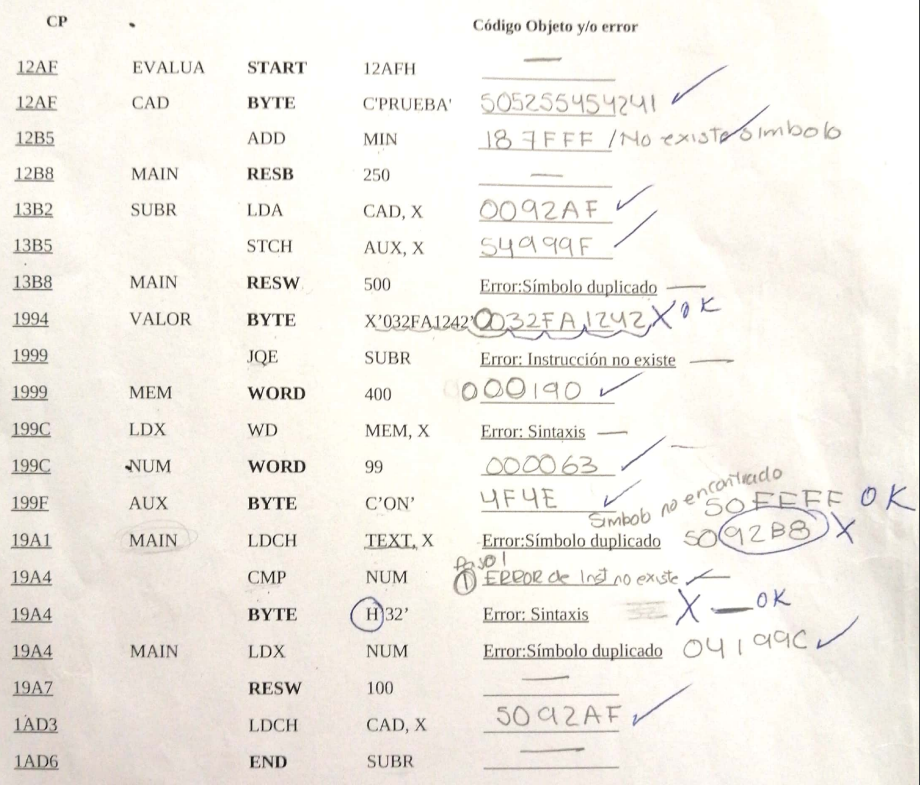 CP Código Objeto y/o error
12AF EVALUA START 12AFH —
12AF CAD BYTE C'PRUEBA' 505255454241 ✓
12B5 ADD MIN 187FFF / No existe símbolo ✓
12B8 MAIN RESB 250 —
13B2 SUBR LDA CAD, X 0092AF ✓
13B5 STCH AUX, X 54999F ✓
13B8 MAIN RESW 500 Error:Símbolo duplicado —
1994 VALOR BYTE X'032FA1242' 0032FA1242 X OK
1999 JQE SUBR Error: Instrucción no existe —
1999 MEM WORD 400 000190 ✓
199C LDX WD MEM, X Error: Sintaxis —
199C NUM WORD 99 000063 ✓
199F AUX BYTE C'ON' 4F4E ✓
Simbolo no encontrado 50FFFF OK
19A1 MAIN LDCH TEXT, X Error:Símbolo duplicado 5092B8 X
Paso 1
19A4 CMP NUM ① ERROR de Inst no existe —
19A4 BYTE H'32' Error: Sintaxis X — OK
19A4 MAIN LDX NUM Error:Símbolo duplicado 04199C ✓
19A7 RESW 100 —
1AD3 LDCH CAD, X 5092AF ✓
1AD6 END SUBR —